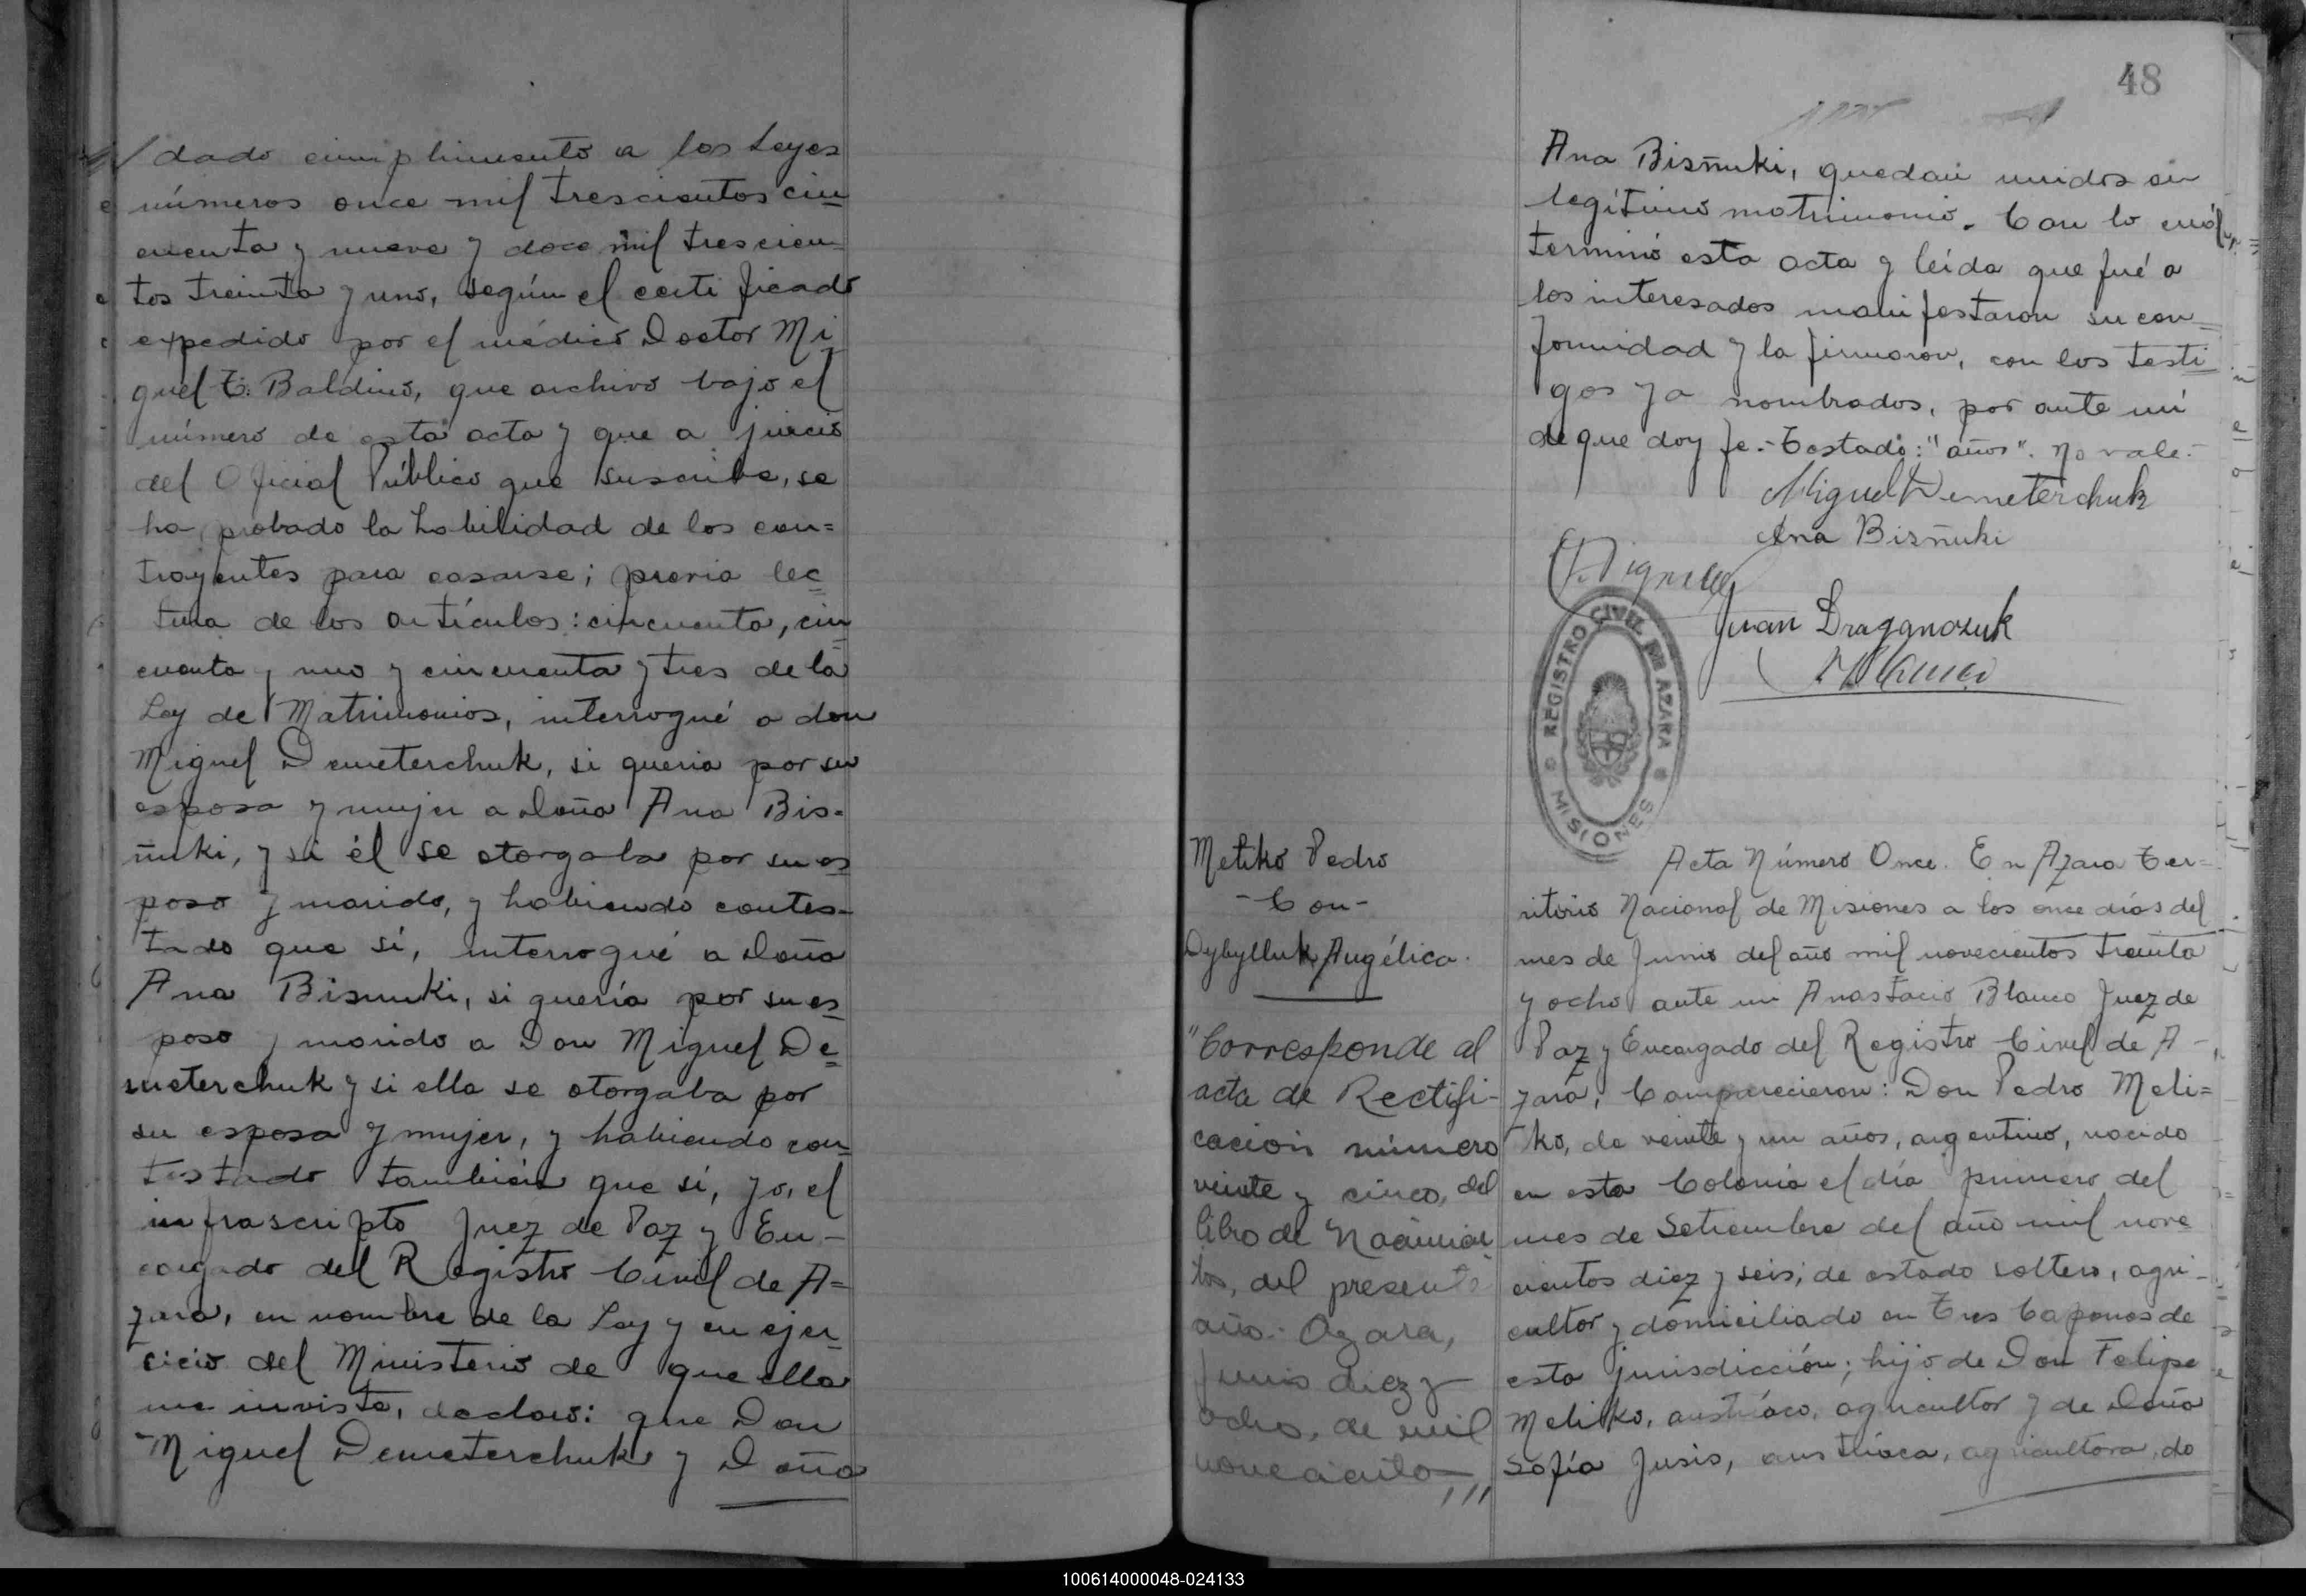 dado cumplimiento a las Leyes
números once mil trescientos cin
cuenta y nueve y doce mil trescien
tos treinta y uno, según el certificado
expedido por el médico Doctor Mi
guel T. Baldino, que archivo bajo el
número de esta acta y que a juicio
del Oficial Público que suscribe, se
ha probado la habilidad de los con=
trayentes para casarse; previa lec
tura de los artículos: cincuenta, cin
cuenta y uno y cincuenta y tres de la
Ley de Matrimonios, interrogué a don
Miguel Demeterchuk, si queria por su
esposa y mujer a Doña Ana Bis-
ñuki, y si él se otorgaba por su es
poso y marido, y habiendo contes-
tado que sí, interrogué a Doña
Ana Bisnuki, si quería por su es
poso y marido a Don Miguel De
meterchuk y si ella se otorgaba por
su esposa y mujer, y habiendo con
testado también que sí, yo, el
infrascripto Juez de Paz y En-
cargado del Registro Civil de A=
zara, en nombre de la Ley y en ejer
cicio del Ministerio de que ella
me inviste, declaro: que Don
Miguel Demeterchuk y Doña
48
Ana Bisñuki, quedan unidos en
legítimo matrimonio. Con lo cuál
terminó esta acta y leída que fué a
los interesados manifestaron su con
formidad y la firmaron, con los testi
gos ya nombrados, por ante mí
de que doy fe.- Testado: "años". No vale.-
Miguel Demeterchuk
Ana Bisñuki
Juan Draganozuk
REGISTRO CIVIL DE AZARA
MISIONES
Meliko Pedro
-Con-
Dybylluk Angélica.
"Corresponde al
acta de Rectifi-
cación número
veinte y cinco, del
libro de Nacimien
tos, del presente
año.- Azara,
Junio diez y
ocho, de mil
novecientos,,,
Acta Número Once. En Azara Ter=
ritorio Nacional de Misiones a los once días del
mes de Junio del año mil novecientos treinta
y ocho ante mi Anastacio Blanco Juez de
Paz y Encargado del Registro Civil de A-
zara, Comparecieron: Don Pedro Meli=
ko, de veinte y un años, argentino, nacido
en esta Colonia el día primero del
mes de Setiembre del año mil nove
cientos diez y seis; de estado soltero, agri-
cultor y domiciliado en Tres Capones de
esta jurisdicción; hijo de Don Felipe
Meliko, austríaco, agricultor y de Doña
Sofía Jusis, austríaca, agricultora, do
100614000048-024133